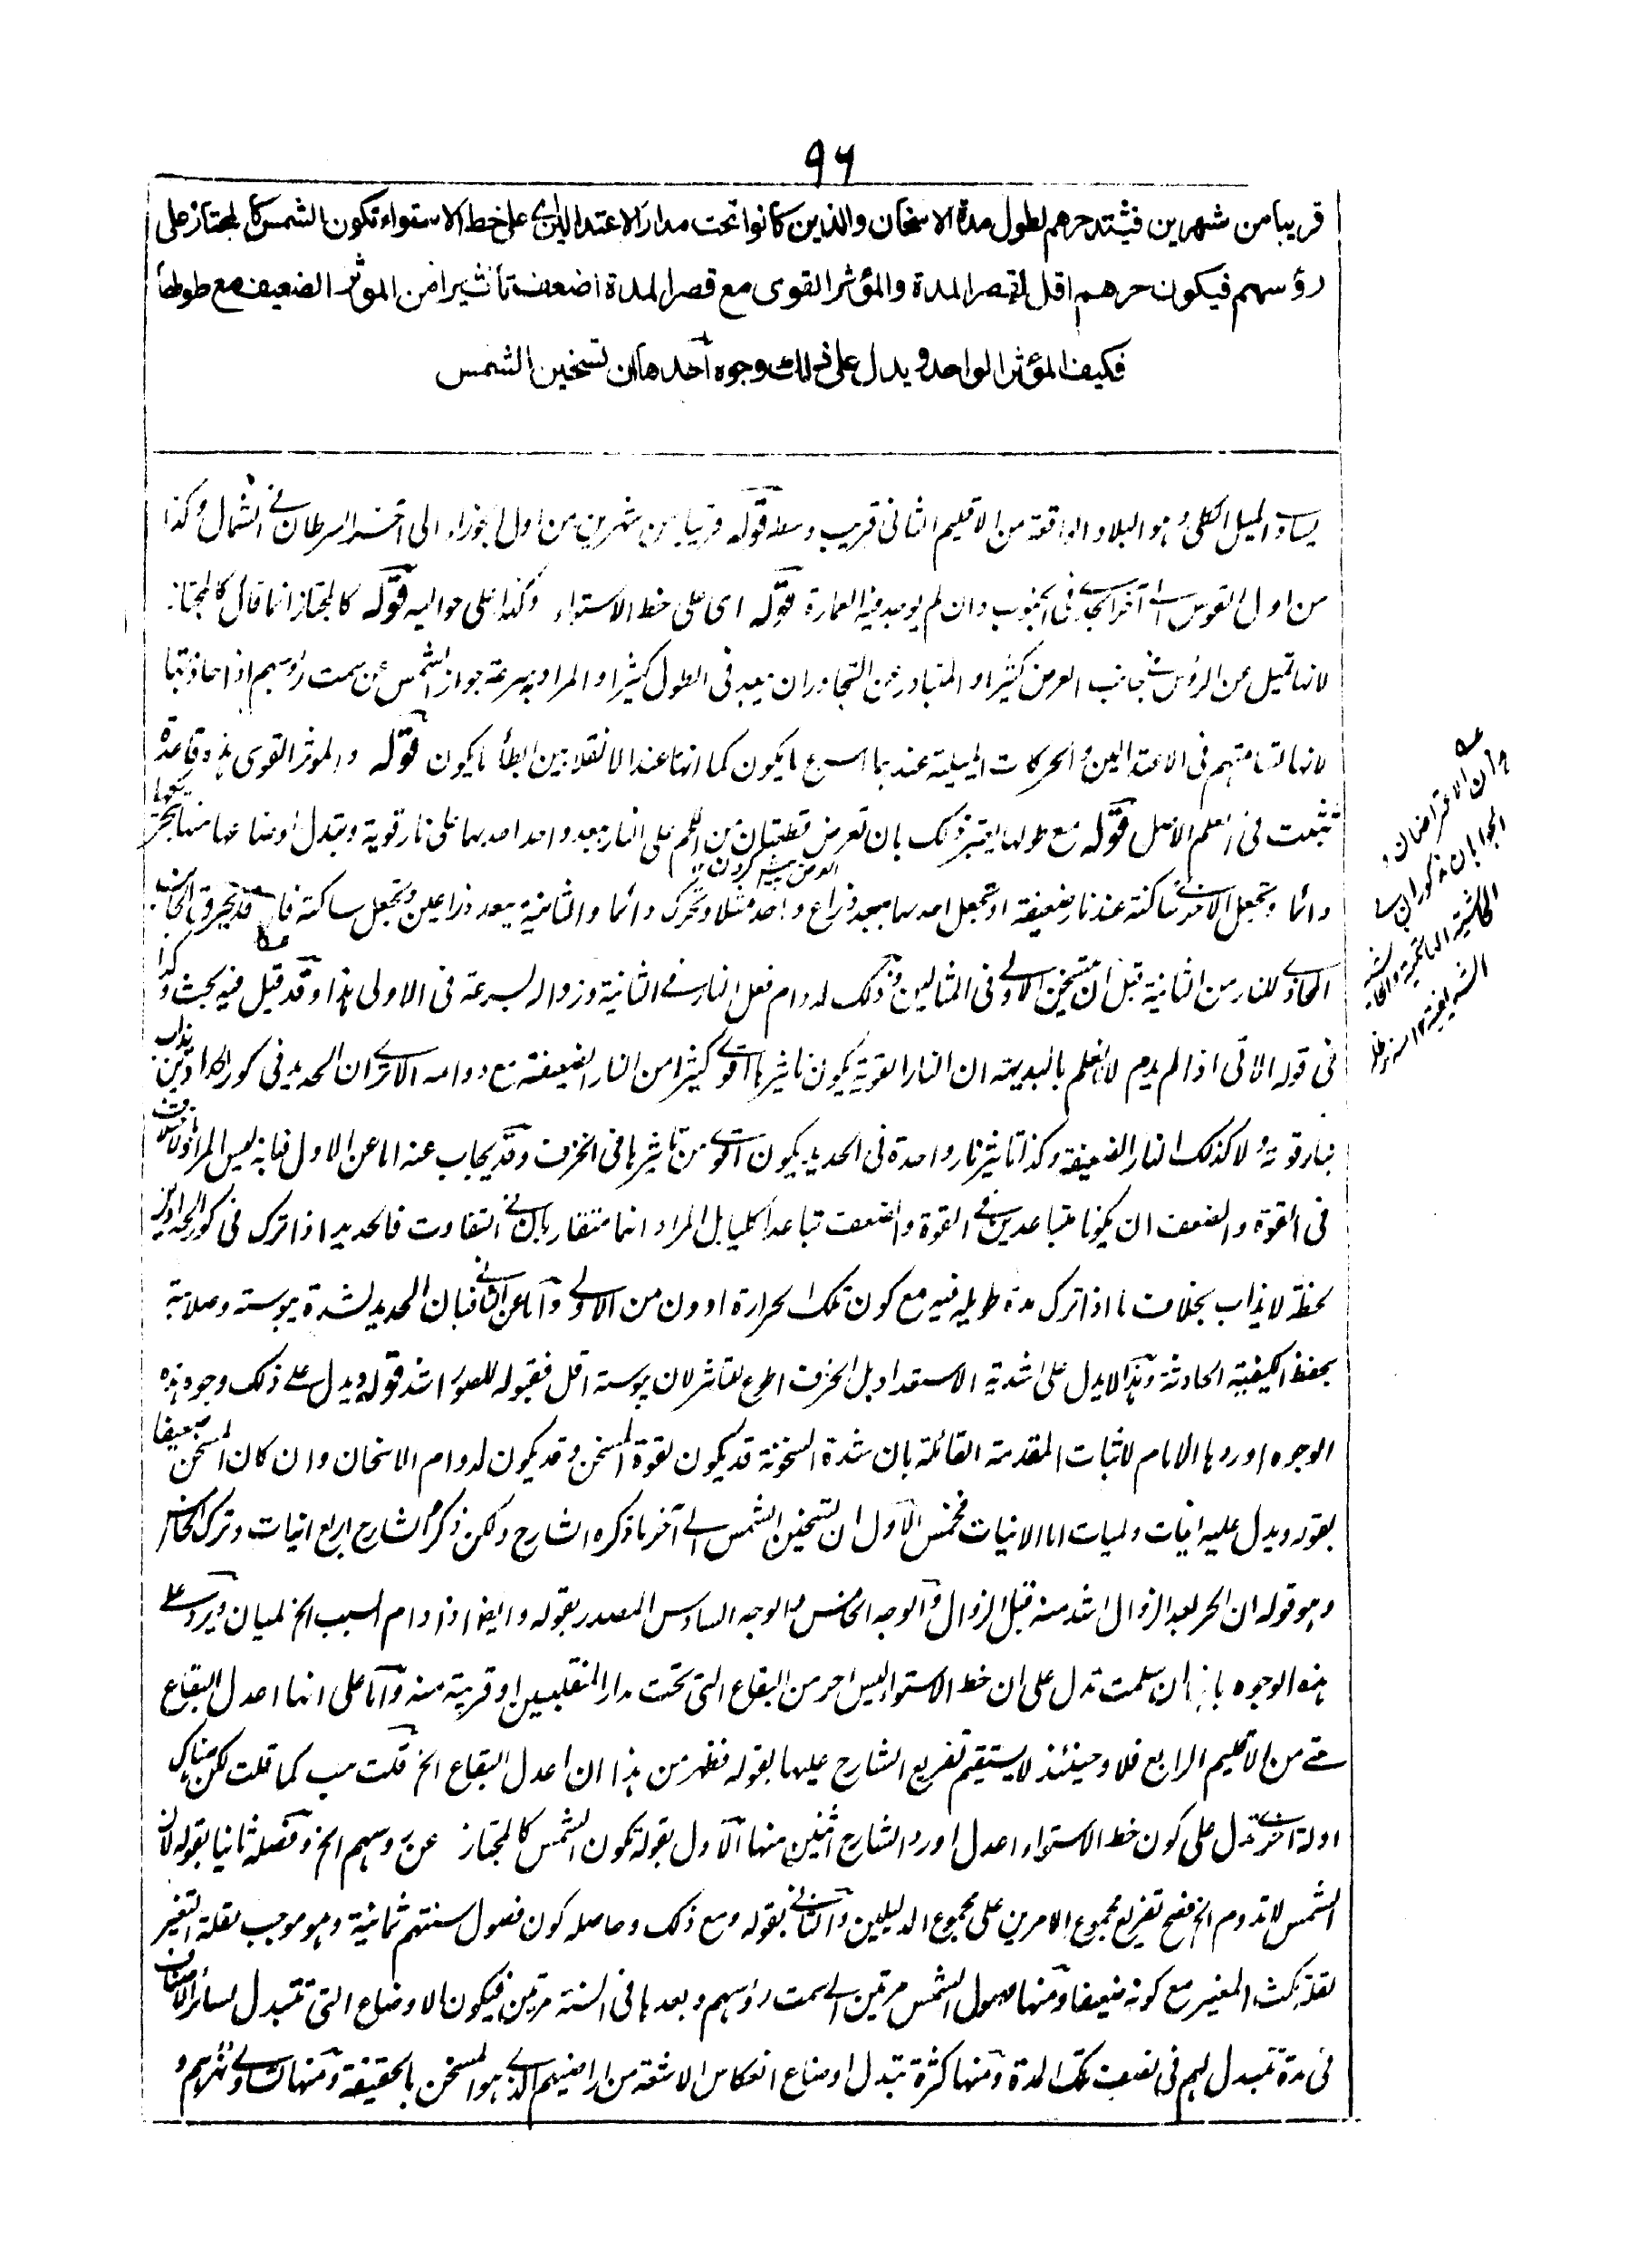 ٩٦
قريبا من شهرين فيشتد حرهم لطول مدة الاسخان والذين كانوا تحت مدار الاعتدالين اى على خط الاستواء تكون الشمس كالمجتاز على
رؤسهم فيكون حرهم اقل لقصر المدة والمؤثر القوى مع قصر المدة اضعف تأثيرا من الموثر الضعيف مع طولها
فكيف المؤثر الواحد ويدل على ذلك وجوه احدها ان تسخين الشمس
يساوى الميل الكلى وهو البلاد الواقعة من الاقليم الثانى قريب وسطه قوله قريبا من شهرين من اول الجوزاء الى آخر السرطان فى الشمال وكذا
من اول القوس الى آخر الجدى فى الجنوب وان لم يوجد فيه العمارة قوله اى على خط الاستواء وكذا على حواليه قوله كالمجتاز انما قال كالمجتاز
لانها تميل عن الرؤس فى جانب العرض كثيرا والمتبادر من التجاوز ان يبعد فى الطول كثيرا والمراد به سرعة جواز الشمس عن سمت رؤسهم اذا حاذتها
لانها تسامتهم فى الاعتدالين والحركات الميلية عندهما اسرع ما يكون كما انها عند الانقلابين ابطأ ما يكون قوله والموثر القوى هذه قاعدة
تثبت فى العلم الاعلى قوله مع طولها يعتبر ذلك بان تعرض قطعتان من اللحم على النار ببعد واحد احدهما على نار قوية وتبدل اوضاعها منها بتحريكها
دائما وتجعل الاخرى ساكنة عند نار ضعيفة او تجعل احدهما ببعد ذراع واحد مثلا وتحرك دائما والثانية ببعد ذراعين وتجعل ساكنة فانه قد يحترق الجانب
العرض پیش کردن
المحاذى للنار من الثانية قبل ان يتسخن الاولى فى المثالين وذلك لدوام فعل النار فى الثانية وزواله بسرعة فى الاولى هذا وقد قيل فيه بحث وكذا
فى قوله الآتى اذا لم يدم لانا نعلم بالبديهة ان النار القوية يكون تاثيرها اقوى كثيرا من النار الضعيفة مع دوامه الا ترى ان الحديد فى كور الحدادين يذاب
بنار قوية ولا كذلك النار الضعيفة وكذا تاثير نار واحدة فى الحديد يكون اقوى من تاثيرها فى الخزف وقد يجاب عنه اما عن الاول فبانه ليس المراد
فى القوة والضعف ان يكونا متباعدين فى القوة والضعف تباعدا كليا بل المراد انهما متقاربان فى التفاوت فالحديد اذا ترك فى كور الحدادين
لحظة لا يذاب بخلاف ما اذا ترك مدة طويلة فيه مع كون تلك الحرارة ادون من الاولى واما عن الثانى فبان الحديد لشدة يبوسته وصلابته
يحفظ الكيفية الحادثة وهذا لا يدل على اشدية الاستعداد بل الخزف اطوع للتاثر لان يبوسته اقل فقبوله للصور اشد قوله ويدل على ذلك وجوه هذه
الوجوه اوردها الامام لاثبات المقدمة القائلة بان شدة السخونة قد يكون لقوة المسخن وقد يكون لدوام الاسخان وان كان المسخن ضعيفا
بقوله ويدل عليه انيات ولميات اما الانيات فخمس الاول ان تسخين الشمس الى آخر ما ذكره الشارح ولكن ذكر الشارح اربع انيات وترك الخامس
وهو قوله ان الحر بعد الزوال اشد منه قبل الزوال والوجه الخامس والوجه السادس المصدر بقوله وايضا اذا دام السبب الخ لميان ويرد على
هذه الوجوه بانها ان سلمت تدل على ان خط الاستواء ليس احر من البقاع التى تحت مدار المنقلبين او قريبة منه واما على انها اعدل البقاع
حتى من الاقليم الرابع فلا وحينئذ لا يستقيم تفريع الشارح عليها بقوله فظهر من هذا ان اعدل البقاع الخ قلت هب كما قلت لكن هناك
ادلة اخرى تدل على كون خط الاستواء اعدل اورد الشارح اثنين منها الاول بقوله تكون الشمس كالمجتاز عن رؤسهم الخ وفصله ثانيا بقوله لان
الشمس لا تدوم الخ فصح تفريع مجموع الامرين على مجموع الدليلين والثانى بقوله ومع ذلك وحاصله كون فصول سنتهم ثمانية وهو موجب لقلة التغير
لقلة مكث المغير مع كونه ضعيفا ومنها وصول الشمس مرتين الى سمت رؤسهم وبعدها فى السنة مرتين فيكون الاوضاع التى تتبدل لسائر
فى مدة تتبدل لهم فى نصف تلك المدة ومنها كثرة تبدل اوضاع انعكاس الاشعة من اراضيهم الذى هو المسخن بالحقيقة ومنها تساوى نهارهم و
عه وان الاعتراضان و
الجوابان مذكوران